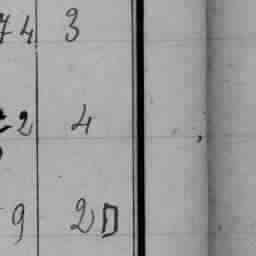 74 3
2 4
9 2D